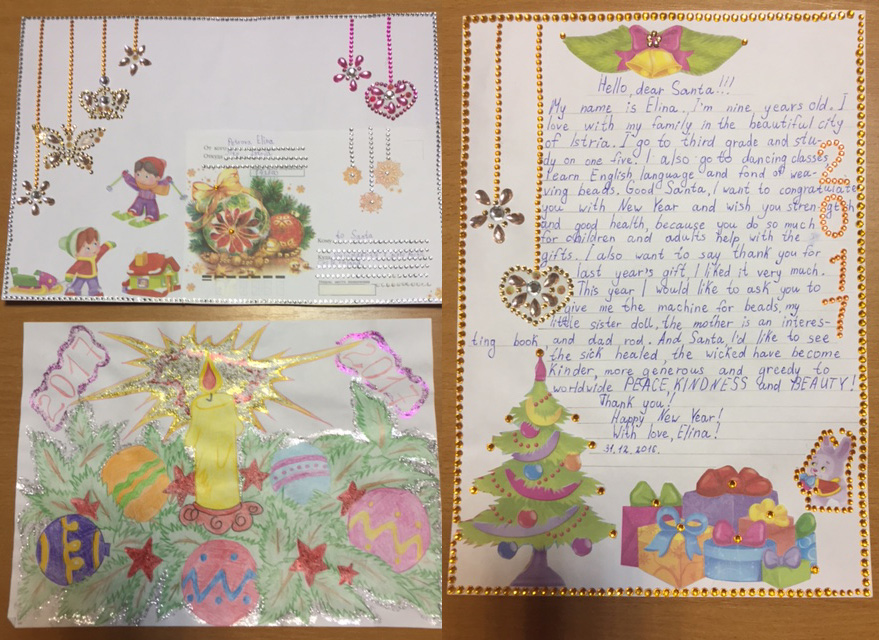 Petrova Elina
to Santa
2017
2017
Hello, dear Santa!!!
My name is Elina., I'm nine years old. I
love with my family in the beautiful city
of Istria. I go to third grade and stu-
dy on one five. I also go to dancing classes,
learn English, language and fond of wea-
ving beads. Good Santa, I want to congratulate
you with New Year and wish you strenghth
and good health, because you do so much
for children and adults help with the
gifts. I also want to say thank you for
last year's gift, I liked it very much.
This year I would like to ask you to
give me the machine for beads, my
little sister doll, the mother is an interes-
ting book and dad rod. And Santa, I'd like to see
the sick healed, the wicked have become
kinder, more generous and greedy to
worldwide PEACE, KINDNESS and BEAUTY!
Thank you!
Happy New Year!
With love, Elina!
31.12.2016.
2017